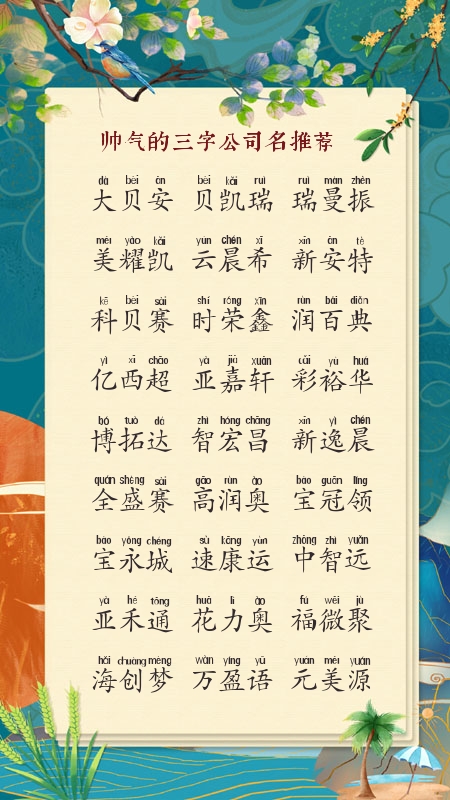 帅气的三字公司名推荐
dà bèi ān bèi kǎi ruì ruì màn zhèn
大贝安 贝凯瑞 瑞曼振
měi yào kǎi yún chén xī xīn ān tè
美耀凯 云晨希 新安特
kē bèi sài shí róng xīn rùn bǎi diǎn
科贝赛 时荣鑫 润百典
yì xī chāo yà jiā xuān cǎi yù huá
亿西超 亚嘉轩 彩裕华
bó tuò dá zhì hóng chāng xīn yì chén
博拓达 智宏昌 新逸晨
quán shèng sài gāo rùn ào bǎo guān lǐng
全盛赛 高润奥 宝冠领
bǎo yǒng chéng sù kāng yùn zhōng zhì yuǎn
宝永城 速康运 中智远
yà hé tōng huā lì ào fú wēi jù
亚禾通 花力奥 福微聚
hǎi chuàng mèng wàn yíng yǔ yuán měi yuán
海创梦 万盈语 元美源